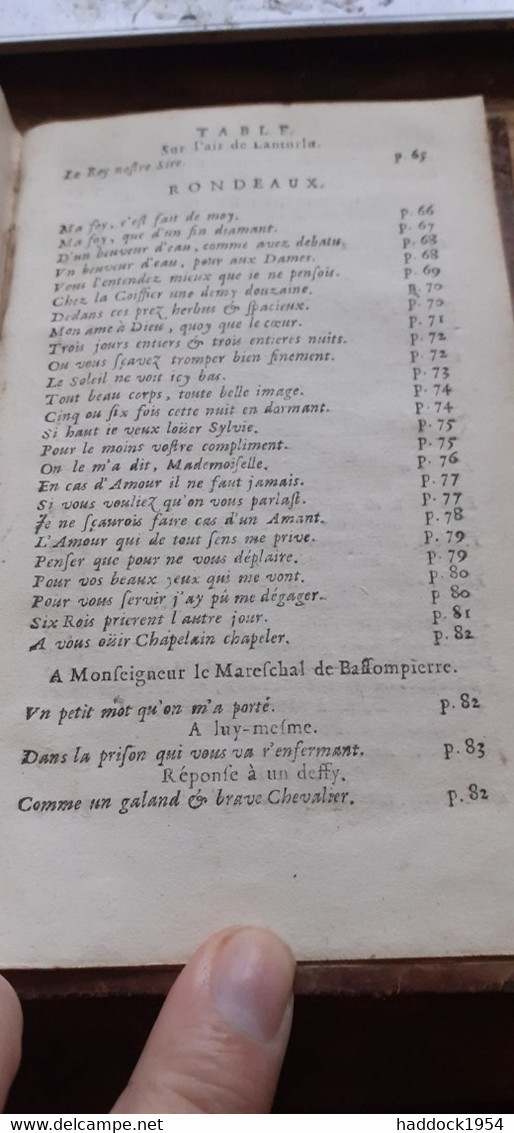 TABLE.
Sur l'air de Lanturlu.
Le Roy nostre Sire. p. 65
RONDEAUX.
Ma foy, c'est fait de moy. p. 66
Ma foy, que d'un fin diamant. p. 67
D'un beuveur d'eau, comme avez debatu, p. 68
Vn beuveur d'eau, pour aux Dames. p. 68
Vous l'entendez mieux que ie ne pensois. p. 69
Chez la Coiffier une demy douzaine. p. 70
Dedans ces prez herbus & spacieux. p. 70
Mon ame à Dieu, quoy que le cœur. p. 71
Trois jours entiers & trois entieres nuits. p. 72
Ou vous sçavez tromper bien finement. p. 72
Le Soleil ne voit icy bas. p. 73
Tout beau corps, toute belle image. p. 74
Cinq ou six fois cette nuit en dormant. p. 74
Si haut ie veux loüer Sylvie. p. 75
Pour le moins vostre compliment. p. 75
On le m'a dit, Mademoiselle. p. 76
En cas d'Amour il ne faut jamais. p. 77
Si vous vouliez qu'on vous parlast. p. 77
Je ne sçaurois faire cas d'un Amant. p. 78
L'Amour qui de tout sens me prive. p. 79
Penser que pour ne vous déplaire. p. 79
Pour vos beaux yeux qui me vont. p. 80
Pour vous servir j'ay pû me dégager. p 80
Six Rois prierent l autre jour. p. 81
A vous oüir Chapelain chapeler. p. 82
A Monseigneur le Mareschal de Bassompierre.
Vn petit mot qu'on m'a porté. p. 82
A luy-mesme.
Dans la prison qui vous va r'enfermant. p. 83
Réponse à un deffy.
Comme un galand & brave Chevalier. p. 82
www.delcampe.net
haddock1954